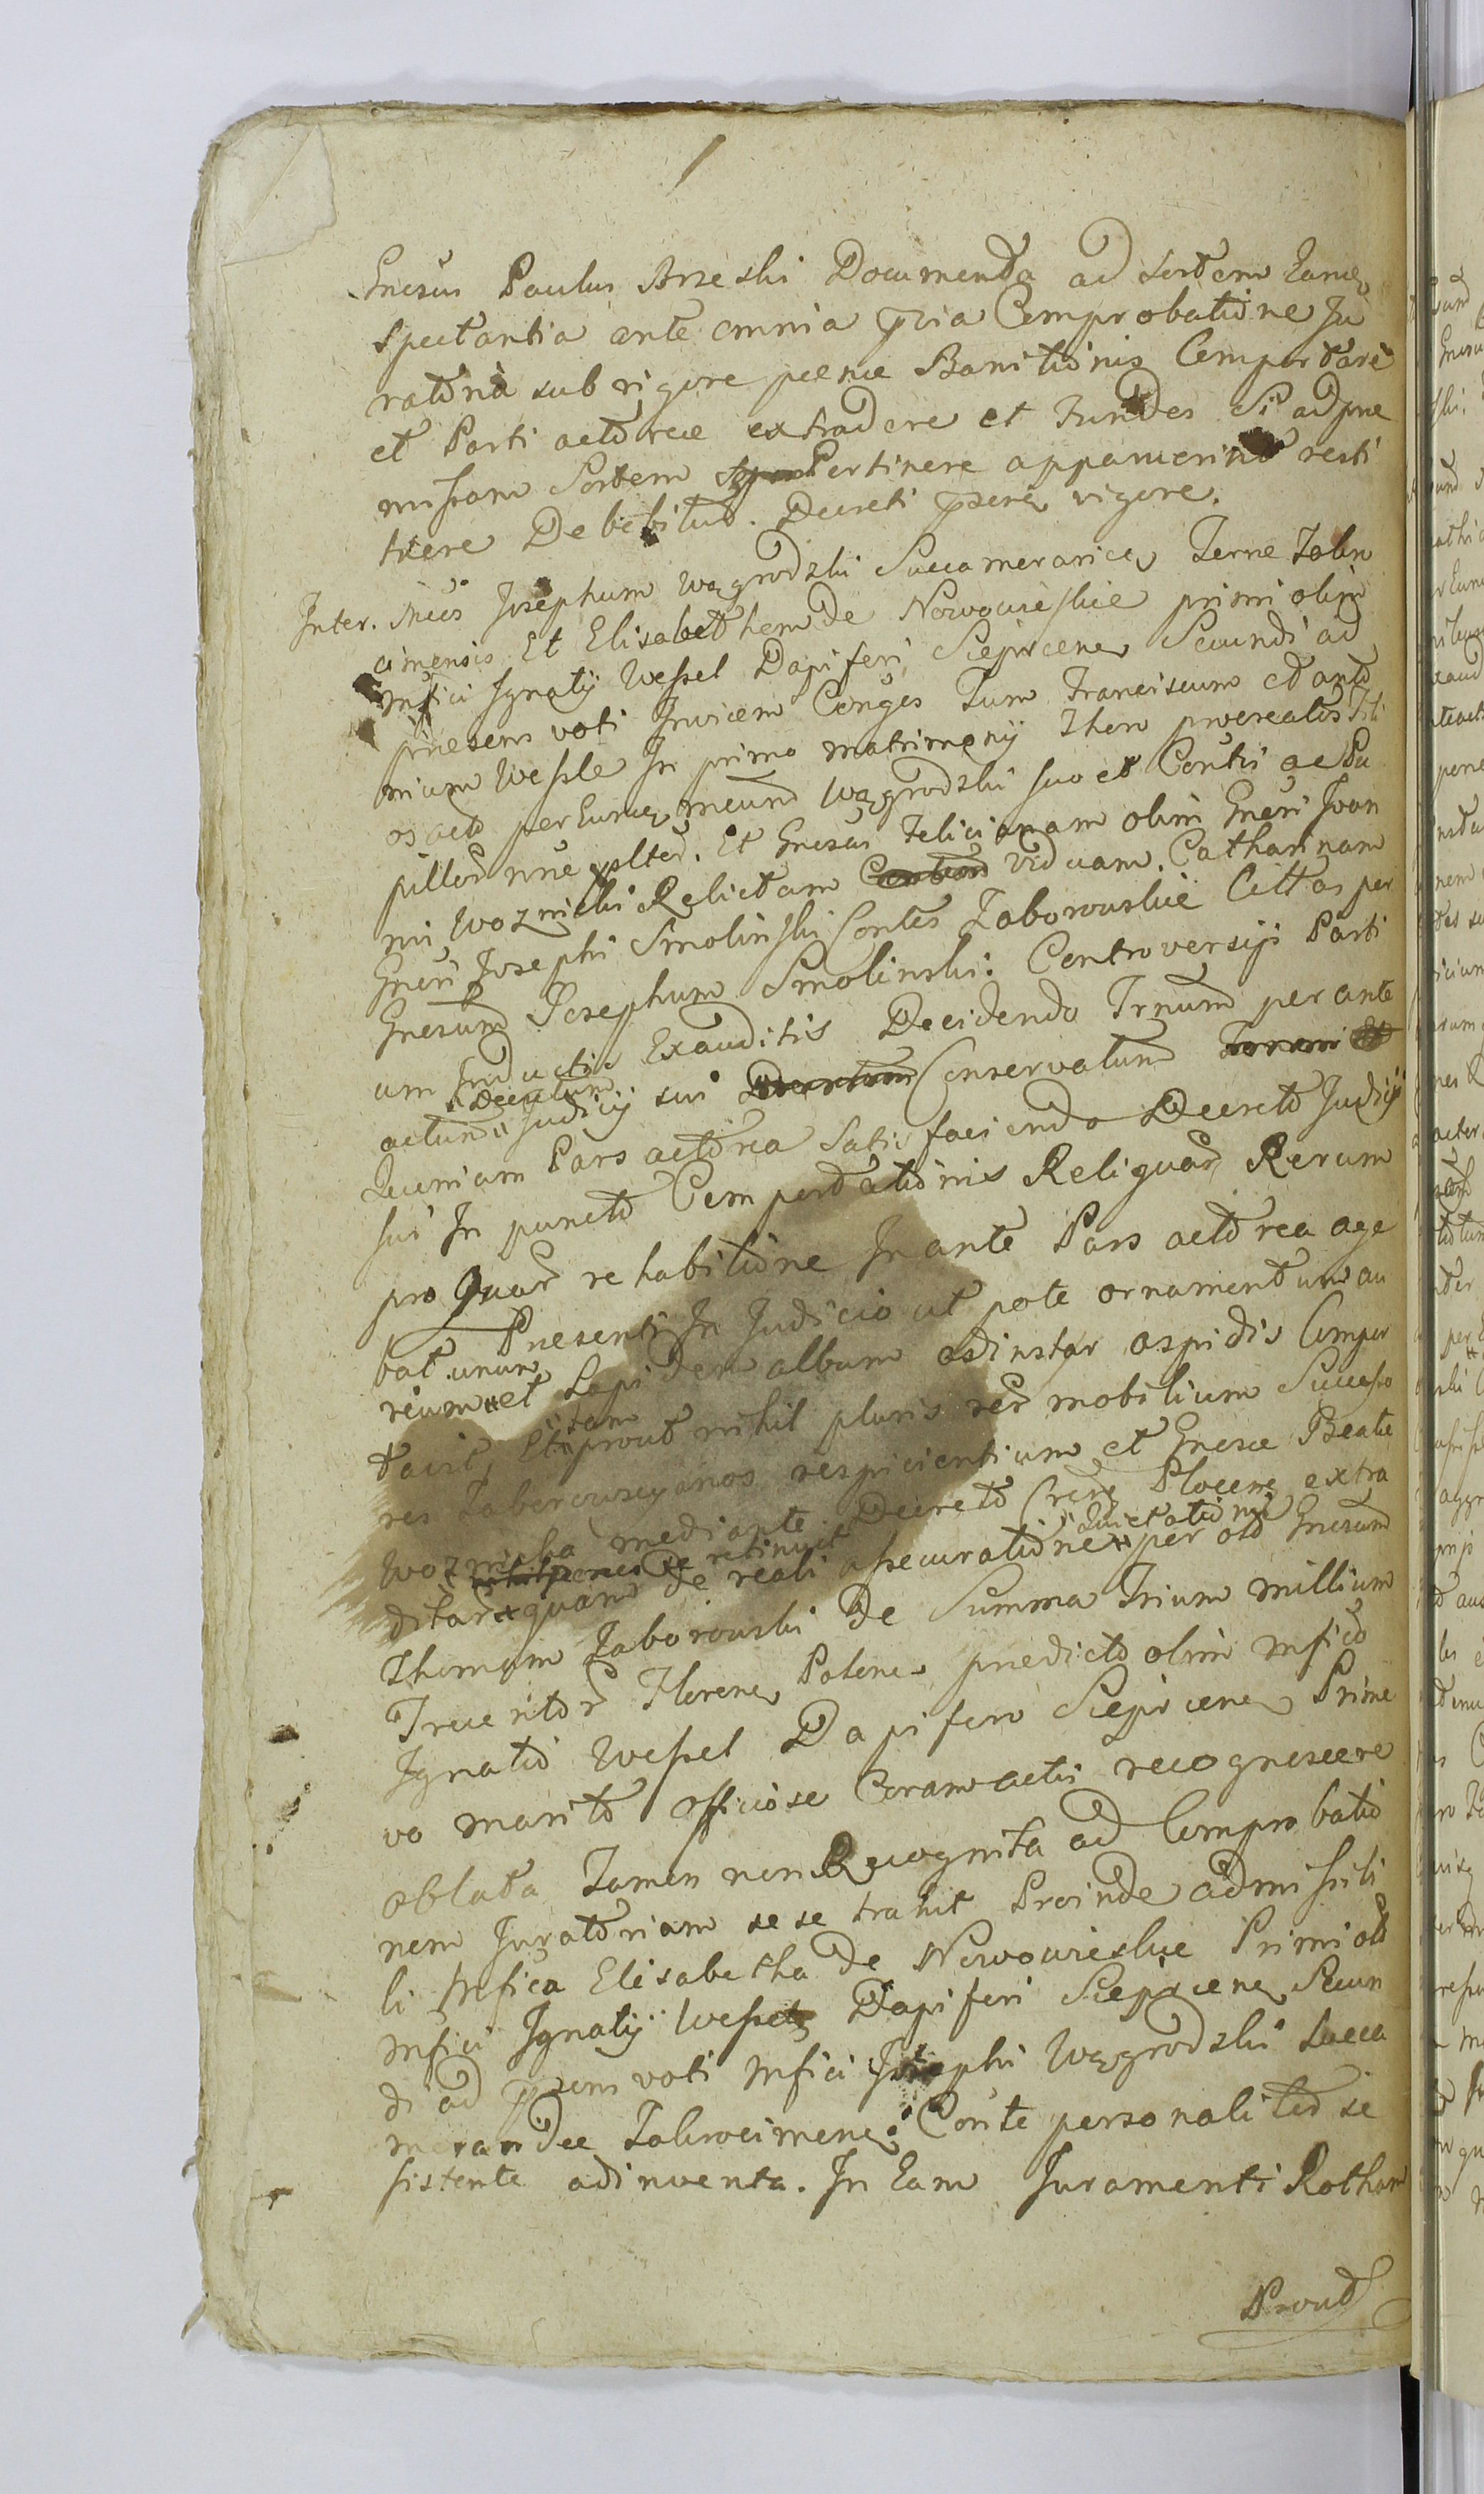 Gnesus Paulus Brzeski Documenta ad sortem Eamq
spectantia ante omnia pria Comprobatione Ju
ratoria sub rigore paenae Banitionis Comportare
et Parti actoreae extradere et Eundes Si ad prae
missam Sortem Pertinere apparuerint resti
tuere Debebitur. Decreti pnsenq vigore.
Inter. Mcos Josephum Wągrodzki Succamerariceq Terrae Zakro
cimensis Et Elisabethem de Nowowieskie primi olim
Mfici Ignatij Wessel Dapiferi Sieprcenq Secundi ad
praesens voti Invicem Conges Tum Franciscum et anto
nium Wessle In primo matrimonij Thoro procreatos Fili
os acto per Eumq meund Wągrodzki suo et Contis ac Pu
pillor nne alter. Et Gnesas Felicianam olim Gnesi Joan
ni Woznicki Relictam viduam. Catharinam
Gnesi Josephi Smolinski Contes Zaborowskie Cittas per
Gnesum Josephum Smolinski: Controversijs Parti
um Productis Exauditis Decidendo Trnum per ante
Decretum
actum Judicij sui Conservatum
Quoniam Pars actorea Satis faciendo Decreto Judicij
sui In puncto Comportationis Reliquar Rerum
pro quar rehabitione In ante Pars actorea age
bat Praesenti In Judicio ut pote ornamentum au
unum
reum et Lapidem album ad instar aspidis Compor
tam
tavit, Et prout nihil pluris rer mobilium Successo
res Zaborowscyanos respicientium et Gnesae Beatae
Woznicka mediante Decreto Cren Plocenq extra
nihil penes se retinuit Quietatione
ditar quam de reali assecuratione per old Gnesum
Thomam Zaborowski de Summa Trium millium
Trecentor Florenq Polonq praedicto olim Mfico
Ignatio Wessel Dapifero Sieprcenq Prime
vo marito officiose Coram actis recognoscere
oblata Tamen non Recognita ad Comprobatio
nem Juratoriam sese trahit Proinde admissibi
li Mfica Elisabetha de Nowowieskie Primi old
Mfici Ignatij Wessel Dapiferi Sieprcenq Secun
di ad pnsens voti Mfici Josephi Wągrodzki Succa
merar dae Zakrocimenq: Conte personaliter se
sistente adinventa. In Eam Juramenti Rotham
Prout